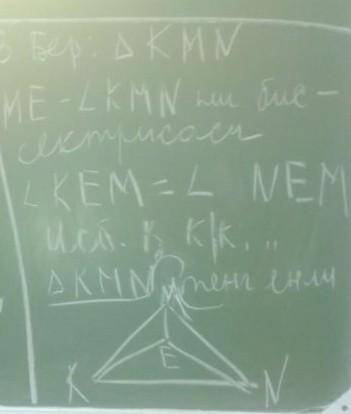 3 Бер: Δ KMN
ME - ∠KMN ни бис-
сектрисаси
∠KEM = ∠ NEM
Исб. қ. к/к.
Δ KMN тенг ёнли
M
E
K N